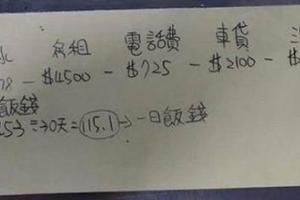 房租 電話費 車貸
78 - $4500 - $725 - $2100 - $
飯錢
453÷30天=115.1→一日飯錢